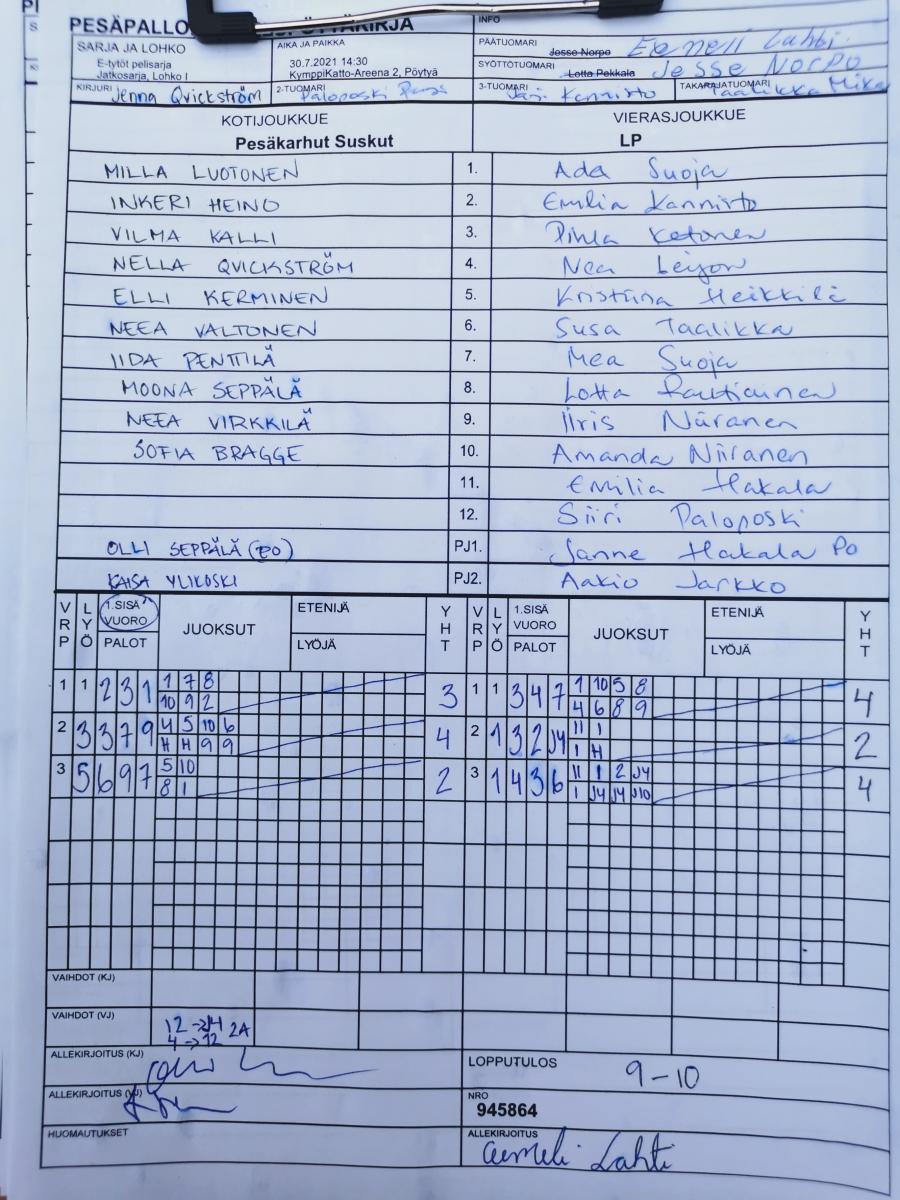 PESÄPALLO
INFO
SARJA JA LOHKO
E-tytöt pelisarja
Jatkosarja, Lohko I
AIKA JA PAIKKA
30.7.2021 14:30
KymppiKatto-Areena 2, Pöytyä
PÄÄTUOMARI Jesse Norpo Eemeli Lahti
SYÖTTÖTUOMARI Lotta Pekkala Jesse Norpo
KIRJURI Jenna Qvickström
2-TUOMARI Paloposki
3-TUOMARI Jari Kannisto
TAKARAJATUOMARI Taalikka Mika
KOTIJOUKKUE VIERASJOUKKUE
Pesäkarhut Suskut LP
MILLA LUOTONEN 1. Ada Suoja
INKERI HEINO 2. Emilia Kannisto
VILMA KALLI 3. Pihla Ketonen
NELLA QVICKSTRÖM 4. Nea Leijon
ELLI KERMINEN 5. Kristiina Heikkilä
NEEA VALTONEN 6. Susa Taalikka
IIDA PENTTILÄ 7. Mea Suoja
MOONA SEPPÄLÄ 8. Lotta Rautiainen
NEEA VIRKKILÄ 9. Iiris Niiranen
SOFIA BRAGGE 10. Amanda Niiranen
11. Emilia Hakala
12. Siiri Paloposki
OLLI SEPPÄLÄ (PO) PJ1. Sanne Hakala PO
KAISA YLIKOSKI PJ2. Aakio Jarkko
VRP LYÖ 1.SISÄVUORO PALOT JUOKSUT ETENIJÄ LYÖJÄ YHT VRP LYÖ 1.SISÄVUORO PALOT JUOKSUT ETENIJÄ LYÖJÄ YHT
1 1 2 3 1 1 7 8 3 1 1 3 4 7 1 10 5 8 4
10 9 2 4 6 8 9
2 3 3 7 9 4 5 10 6 4 2 1 3 2 J4 11 1 2
H H 9 9 1 H
3 5 6 9 7 5 10 2 3 1 4 3 6 11 1 2 J4 4
8 1 1 J4 J4 J10
VAIHDOT (KJ)
VAIHDOT (VJ) 12 → J4 2A
4 → 12
ALLEKIRJOITUS (KJ)
LOPPUTULOS 9-10
ALLEKIRJOITUS (VJ)
NRO
945864
HUOMAUTUKSET
ALLEKIRJOITUS Eemeli Lahti